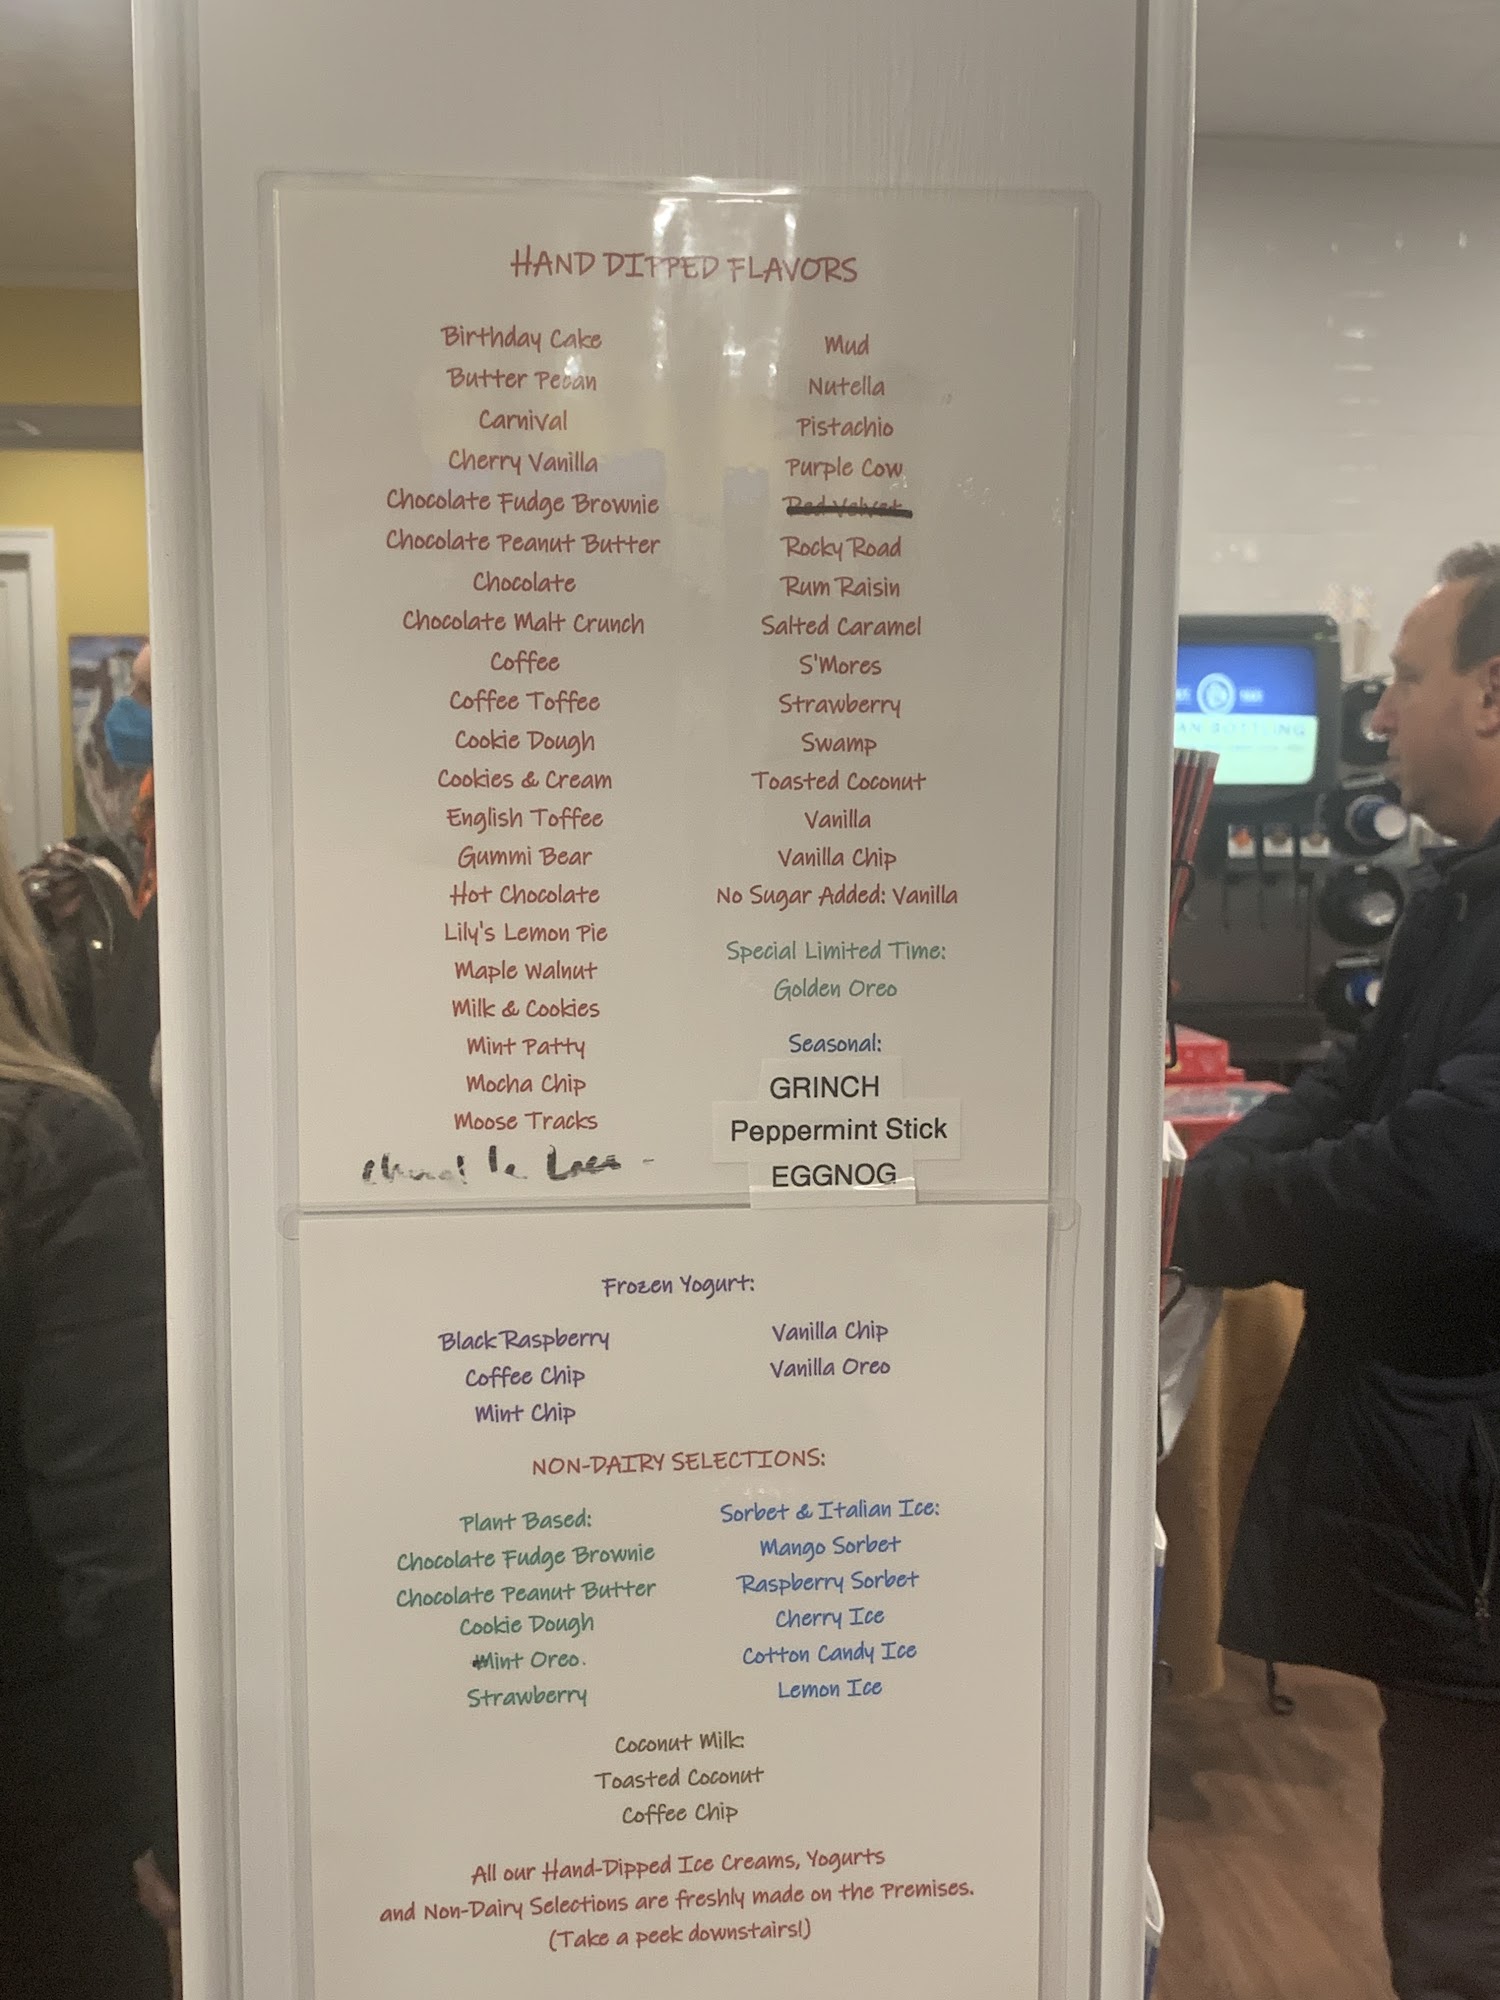 HAND DIPPED FLAVORS
Birthday Cake
Butter Pecan
Carnival
Cherry Vanilla
Chocolate Fudge Brownie
Chocolate Peanut Butter
Chocolate
Chocolate Malt Crunch
Coffee
Coffee Toffee
Cookie Dough
Cookies & Cream
English Toffee
Gummi Bear
Hot Chocolate
Lily's Lemon Pie
Maple Walnut
Milk & Cookies
Mint Patty
Mocha Chip
Moose Tracks
Mud
Nutella
Pistachio
Purple Cow
Red Velvet
Rocky Road
Rum Raisin
Salted Caramel
S'Mores
Strawberry
Swamp
Toasted Coconut
Vanilla
Vanilla Chip
No Sugar Added: Vanilla
Special Limited Time:
Golden Oreo
Seasonal:
GRINCH
Peppermint Stick
EGGNOG
Frozen Yogurt:
Black Raspberry
Coffee Chip
Mint Chip
Vanilla Chip
Vanilla Oreo
NON-DAIRY SELECTIONS:
Plant Based:
Chocolate Fudge Brownie
Chocolate Peanut Butter
Cookie Dough
Mint Oreo.
Strawberry
Sorbet & Italian Ice:
Mango Sorbet
Raspberry Sorbet
Cherry Ice
Cotton Candy Ice
Lemon Ice
Coconut Milk:
Toasted Coconut
Coffee Chip
All our Hand-Dipped Ice Creams, Yogurts
and Non-Dairy Selections are freshly made on the Premises.
(Take a peek downstairs!)
BOTTLING